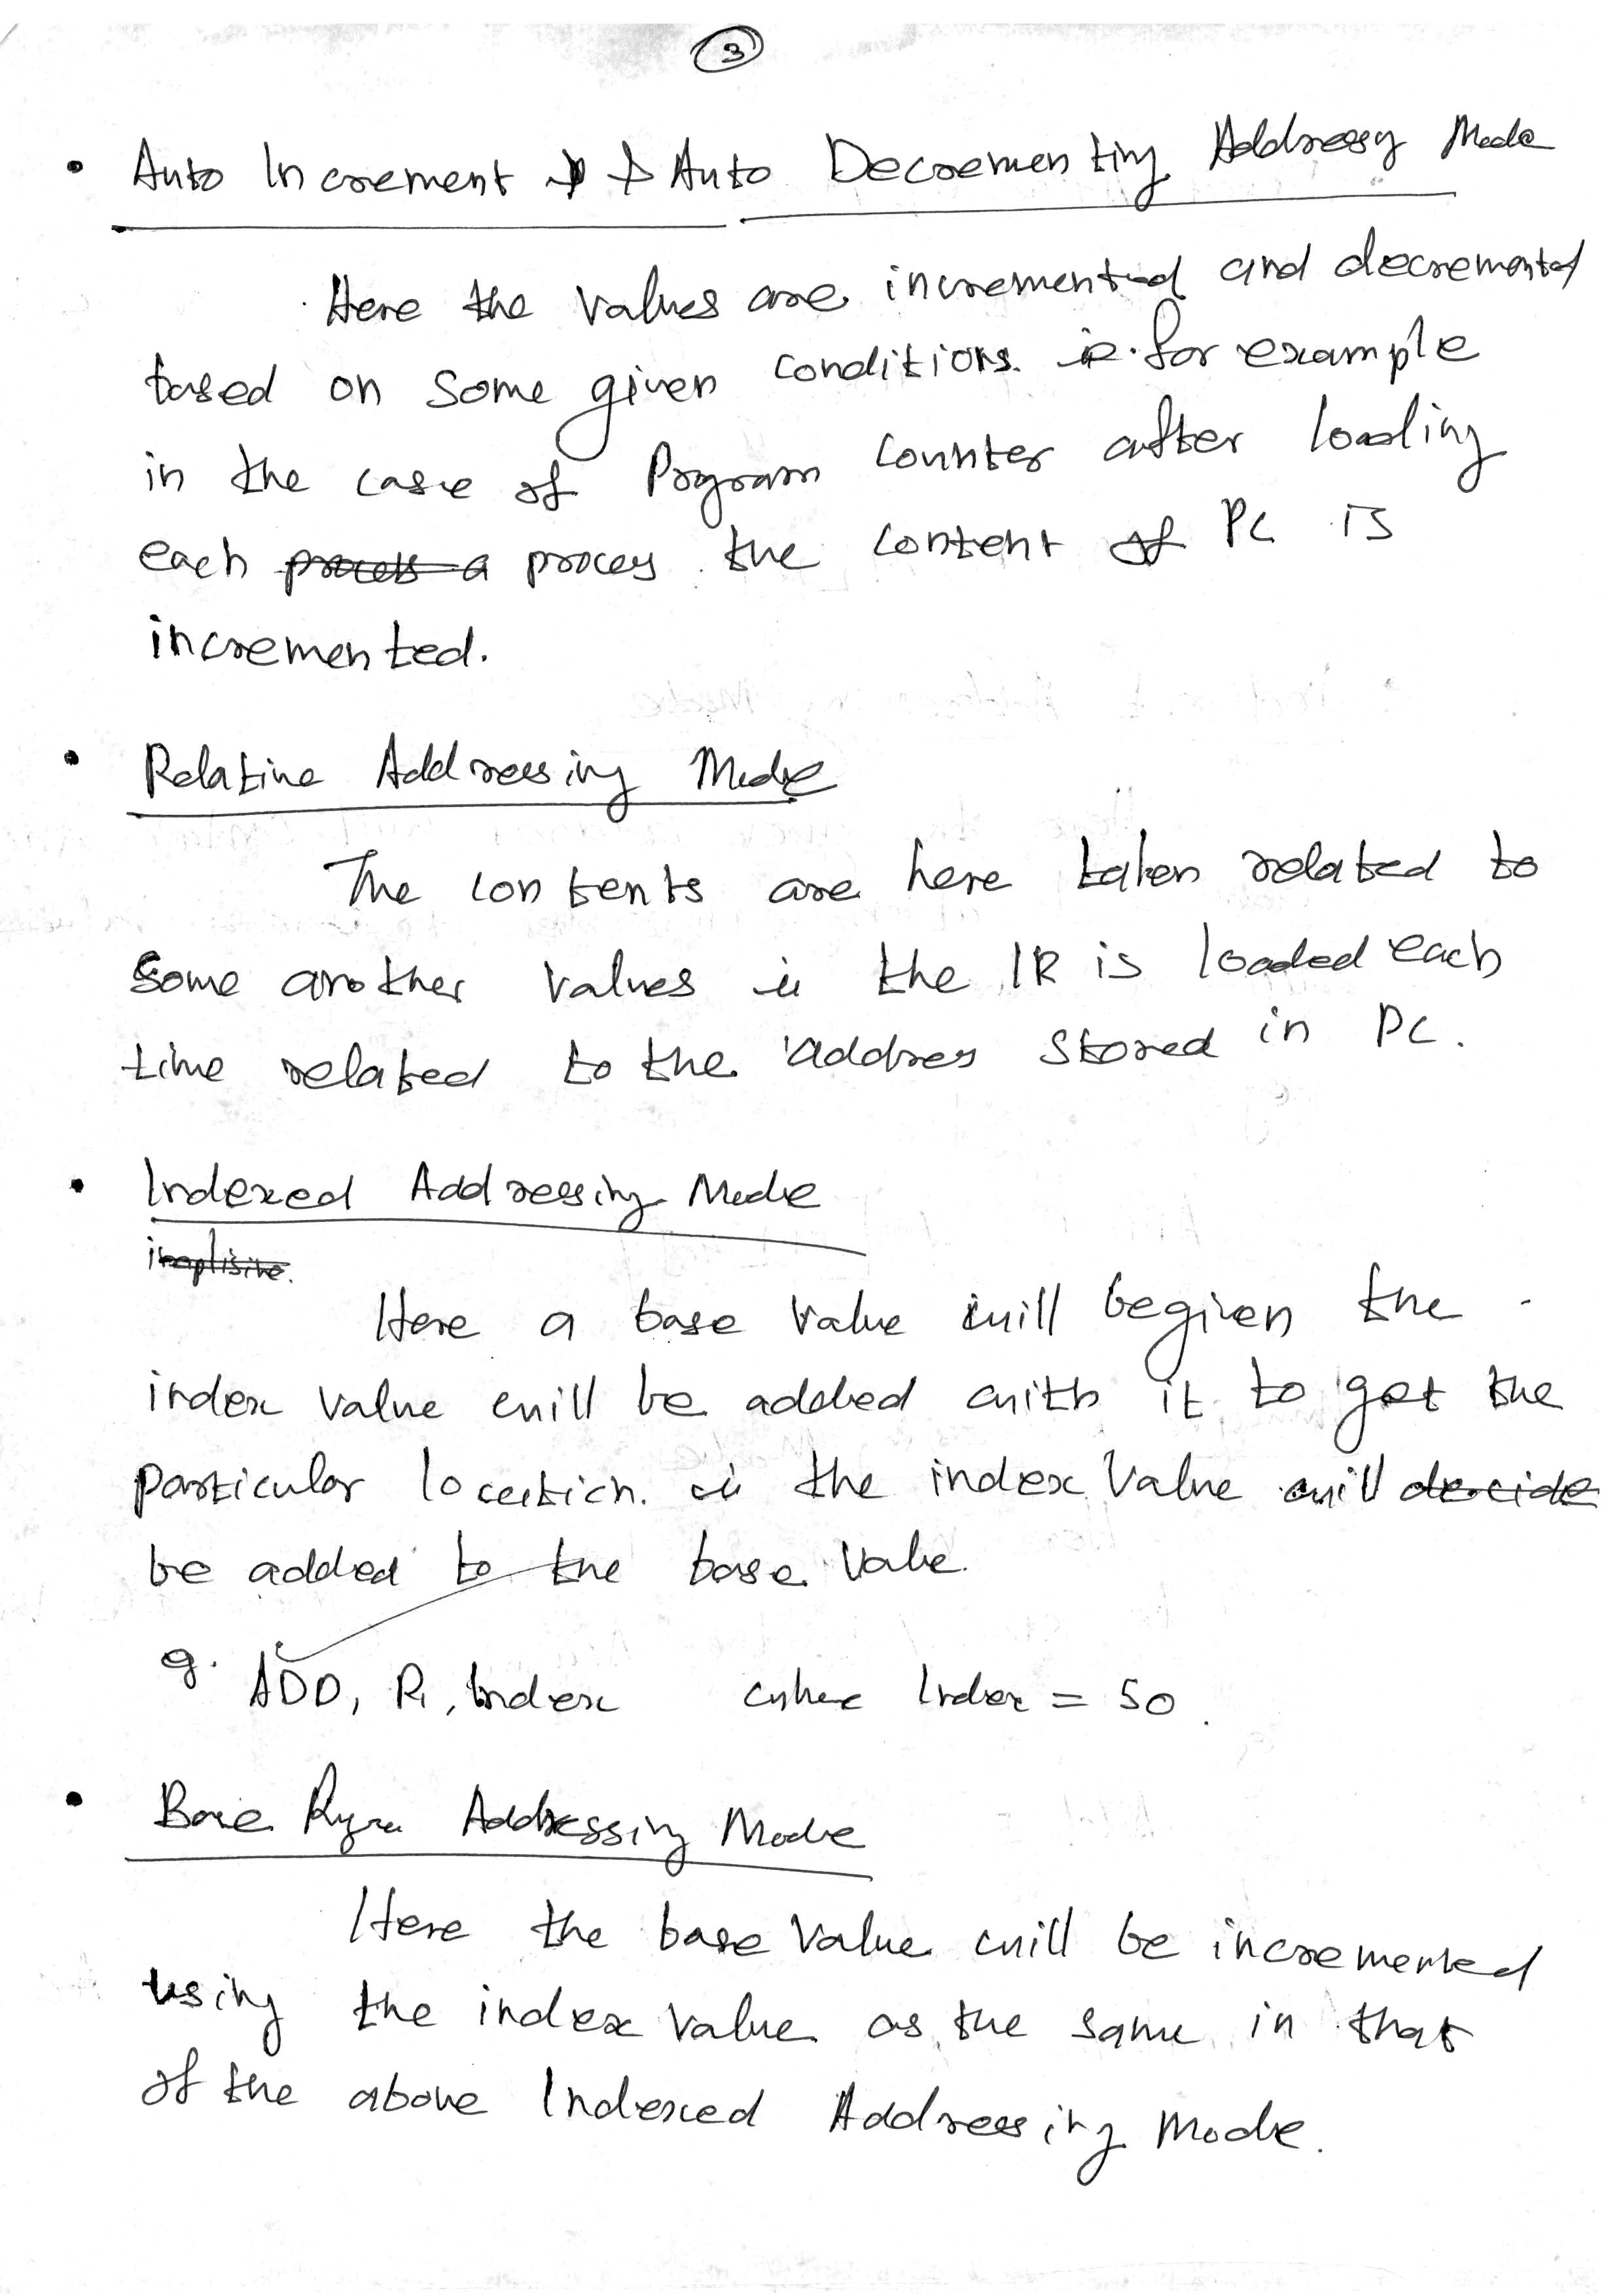 3
• Auto Increment & Auto Decrementing Addressy Mode
Here the values are incremented and decremented
based on some given conditions. ie. for example
in the case of Program Counter after loading
each process a proces the content of PC is
incremented.
• Relative Addressing Mode
The contents are here taken related to
some another values ie the IR is loaded each
time related to the addres stored in PC.
• Indexed Addressing Mode
Here a base value will be given the
index value will be added with it to get the
particular location. ie the index value will decide
be added to the base value.
eg. ADD, R1, Index where Index = 50.
• Base Addressing Mode
Here the base value will be incremented
using the index value as the same in that
of the above Indexed Addressing Mode.